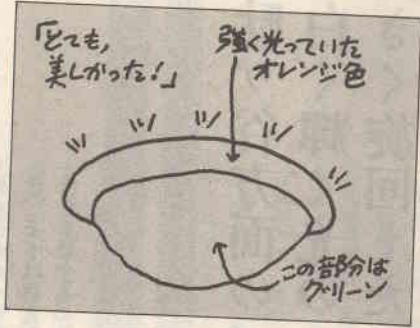 「とても、
美しかった!」
強く光っていた
オレンジ色
この部分は
グリーン